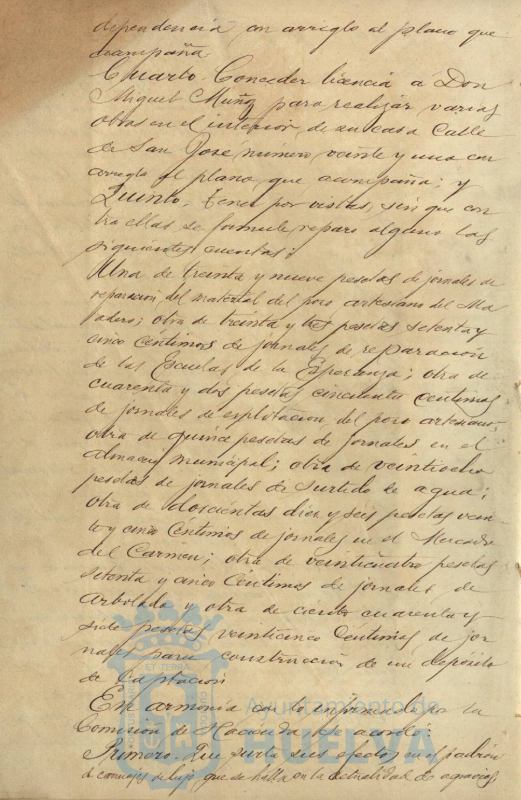 dependencia con arreglo al plano que
acompaña.
Cuarto. Conceder licencia a Don
Miguel Muñoz para realizar varias
obras en el interior de su casa Calle
de San José número veinte y uno con
arreglo al plano que acompaña; y
Quinto. Tener por vistas, sin que con
tra ellas se formule reparo alguno las
siguientes cuentas:
Una de treinta y nueve pesetas de jornales de
reparación del material del pozo artesiano del Ma
tadero; otra de treinta y tres pesetas setenta y
cinco céntimos de jornales de reparación
de las Escuelas de la Esperanza; otra de
cuarenta y dos pesetas cincuenta centimos
de jornales de explotacion del pozo artesiano;
otra de quince pesetas de jornales en el
almacen municipal; otra de veintiocho
pesetas de jornales de surtido de agua;
otra de doscientas diez y seis pesetas vein
te y cinco céntimos de jornales en el Mercado
del Carmen; otra de veinticuatro pesetas
setenta y cinco céntimos de jornales de
arbolado y otra de ciento cuarenta y
siete pesetas veinticinco céntimos de jor
nales para construcción de un depósito
de captación.
En armonia con lo informado por la
Comisión de Hacienda se acordó:
Primero. Que surta sus efectos en el padrón
de carruajes de lujo que se halla en la actualidad de agravios,
ET TERRA
Ayuntamiento de
HUELVA